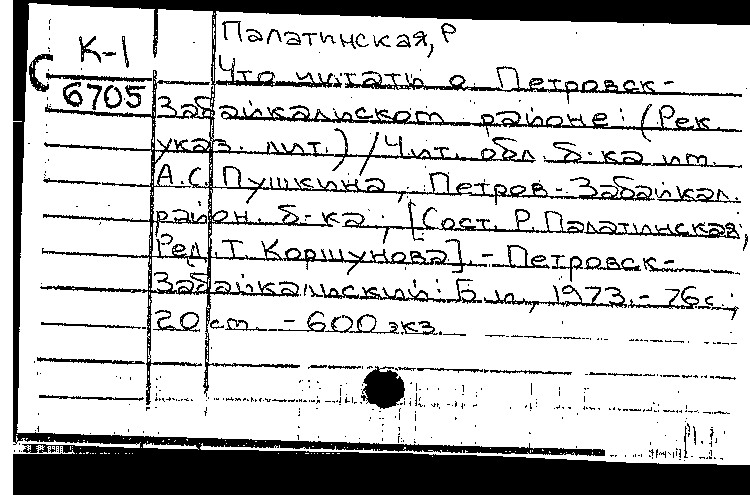 Палатинская, Р
К-1
С
Что читать о Петровск-
6705
Забайкальском районе: (Рек.
указ. лит.) / Чит. обл. б-ка им.
А.С. Пушкина, Петров-Забайкал.
район. б-ка; [Сост. Р. Палатинская;
Ред. Т. Коршунова]. - Петровск-
Забайкальский: Б.и., 1973. - 76 с.;
20 см. - 600 экз.